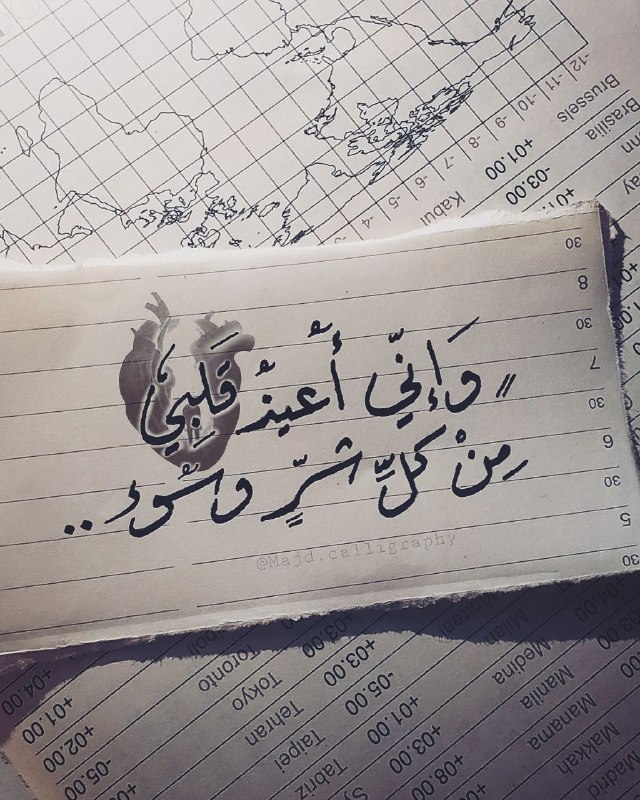 " وَإِنّي أُعيذُ قَلبي
مِنْ كلِّ شرٍّ وسُوء ..
@Majd.calligraphy
30
8
30
7
30
6
30
5
30
-12 -11 -10 -9 -8 -7 -6 -5 -4
Brussels
Brasilia +01.00
-03.00
Kabul
Toronto
Tokyo
Tehran
Taipei
Tabriz
+04.00
+01.00
+02.00
-05.00
+03.00
+03.00
-05.00
+01.00
+03.00
+08.00
+04.00
Montreal
Milan
Medina
Manila
Manama
Makkah
Madrid